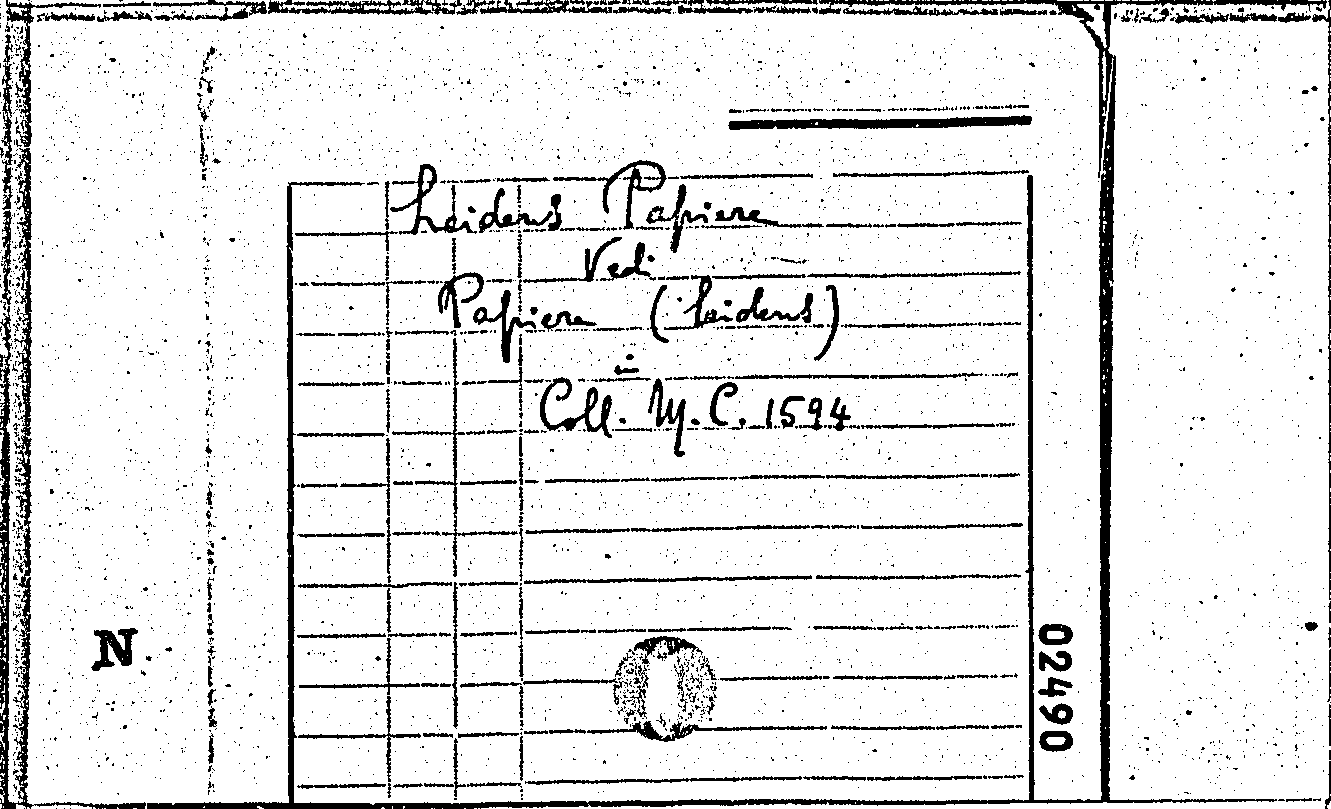 Leidens Papiere
Vedi
Papiere (Leidens)
in
Coll. M. C. 1594
N
02490